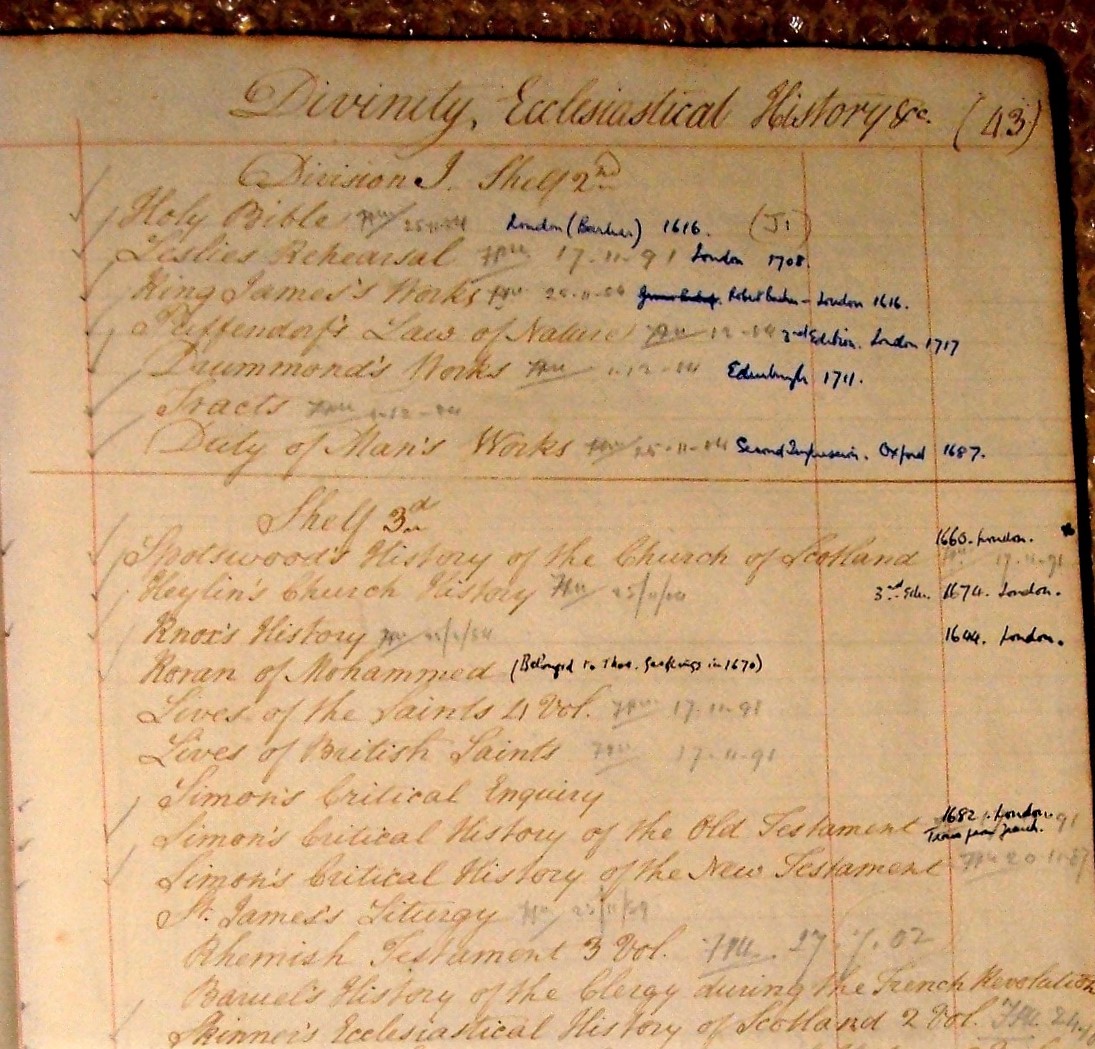 Divinity, Ecclesiastical History &c. (43)
Division I. Shelf 2nd
Holy Bible 25-11-84 London (Barker) 1616. (J1)
Leslies Rehearsal 17-11-91 London 1708
King James's Works London 1616.
Puffendorf's Law of Nature 3rd Edition. London 1717
Drummond's Works 1-12-84 Edinburgh 1711.
Tracts 1-12-84
Duty of Man's Works 25-11-84 Second Impression. Oxford 1687.
Shelf 3d
1660. London.
Spotswood's History of the Church of Scotland 17-11-91
Heylin's Church History 3rd Edn. 1674. London.
Knox's History 1644. London.
Koran of Mohammed (Belonged to Thos. in 1670)
Lives of the Saints 4 Vol. 17-11-91
Lives of British Saints 17-11-91
Simon's Critical Enquiry
1682. London.
Simon's Critical History of the Old Testament 91
Trans from French.
Simon's Critical History of the New Testament
St. James's Liturgy
Rhemish Testament 3 Vol. 27.7.02
Baruel's History of the Clergy during the French Revolution
Skinner's Ecclesiastical History of Scotland 2 Vol.